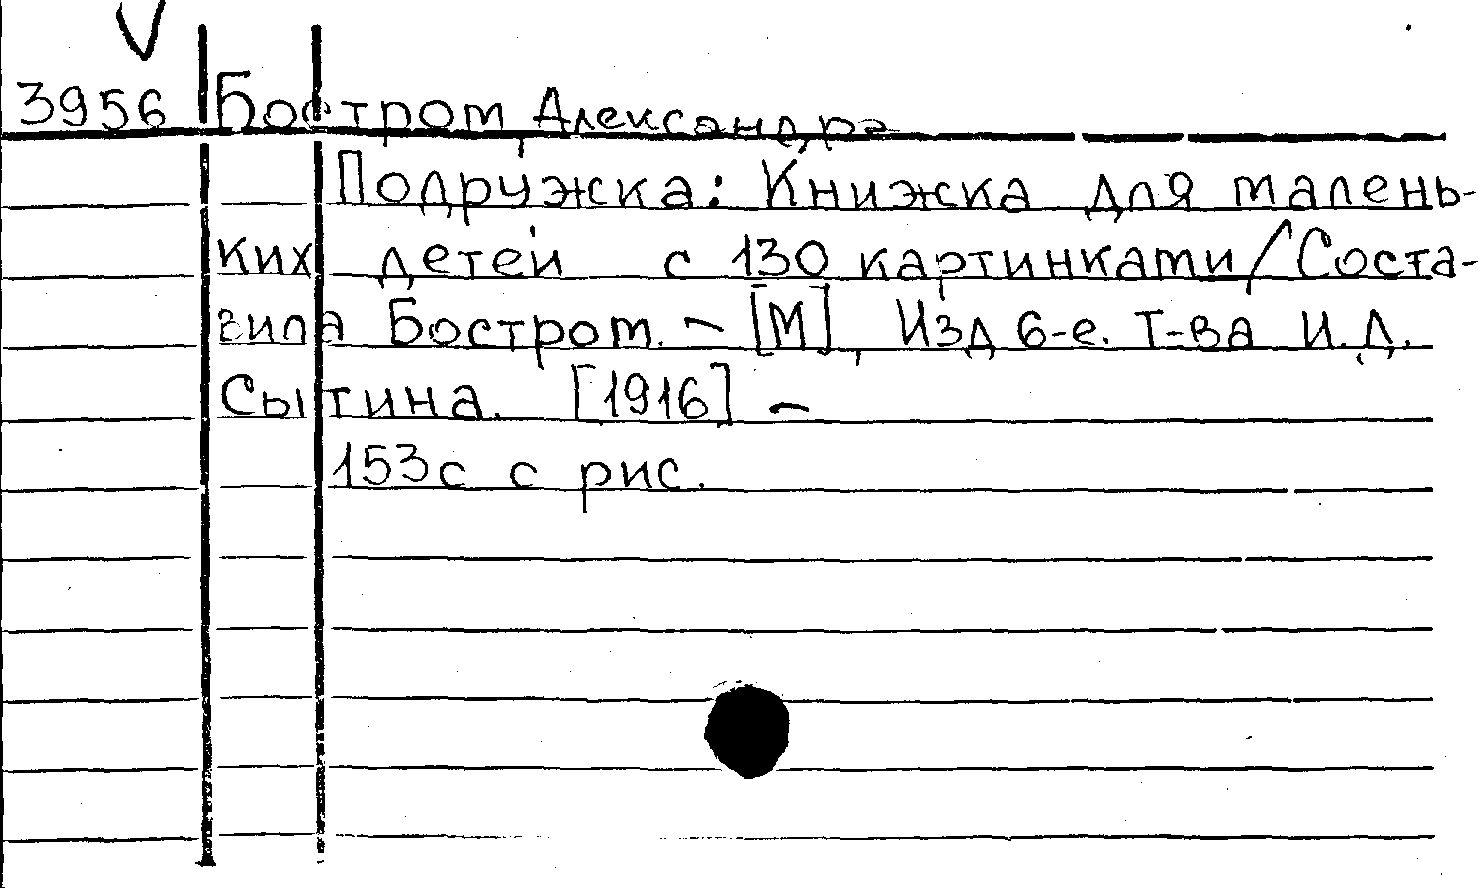 V
3956 Бостром Александра
Подружка: Книжка для малень-
ких детей с 130 картинками/Соста-
вила Бостром. – [М], Изд 6-е. Т-ва И.Д.
Сытина. [1916] –
153с с рис.